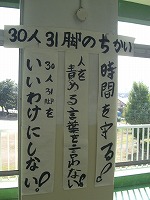 30人31脚のちかい
時間を守る!
人を責める言葉を言わない!
30人31脚を
いいわけにしない。!